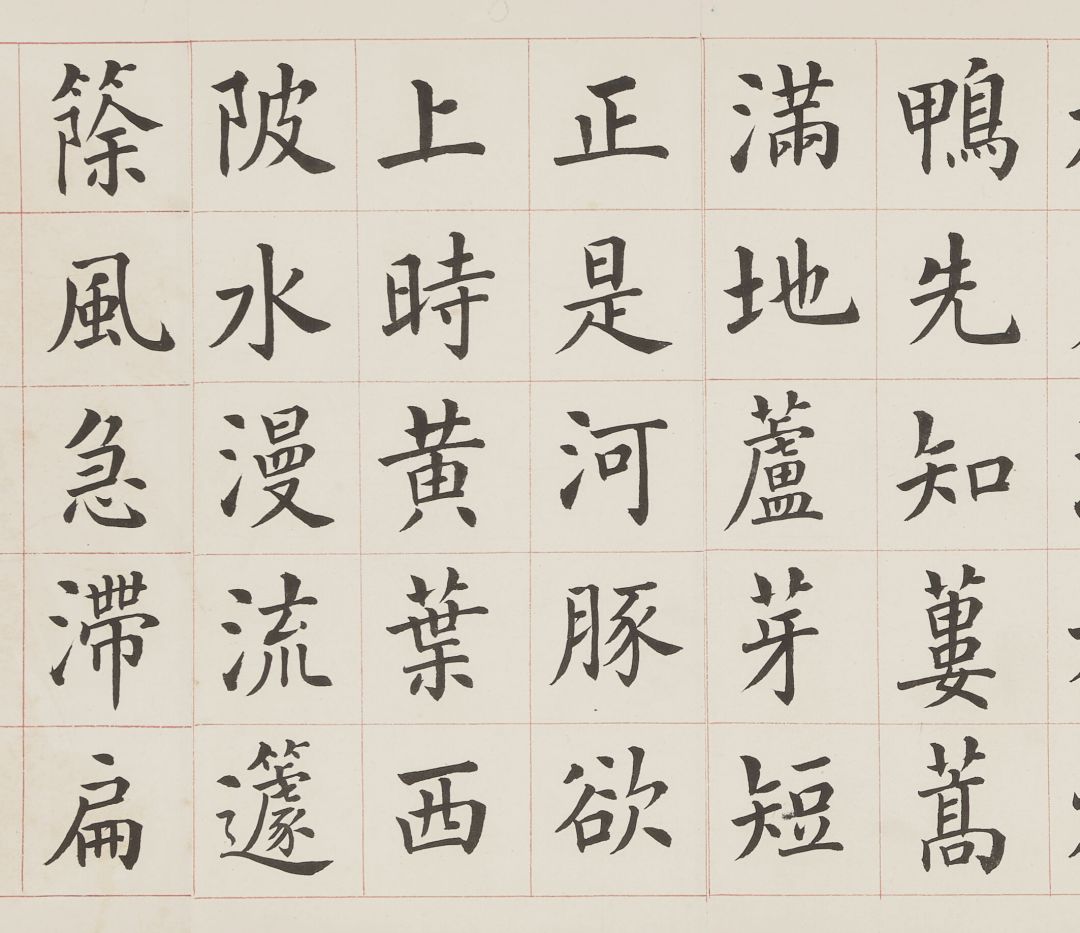 鴨先知蔞蒿
滿地蘆芽短
正是河豚欲
上時黃葉西
陂水漫流籧
篨風急滯扁